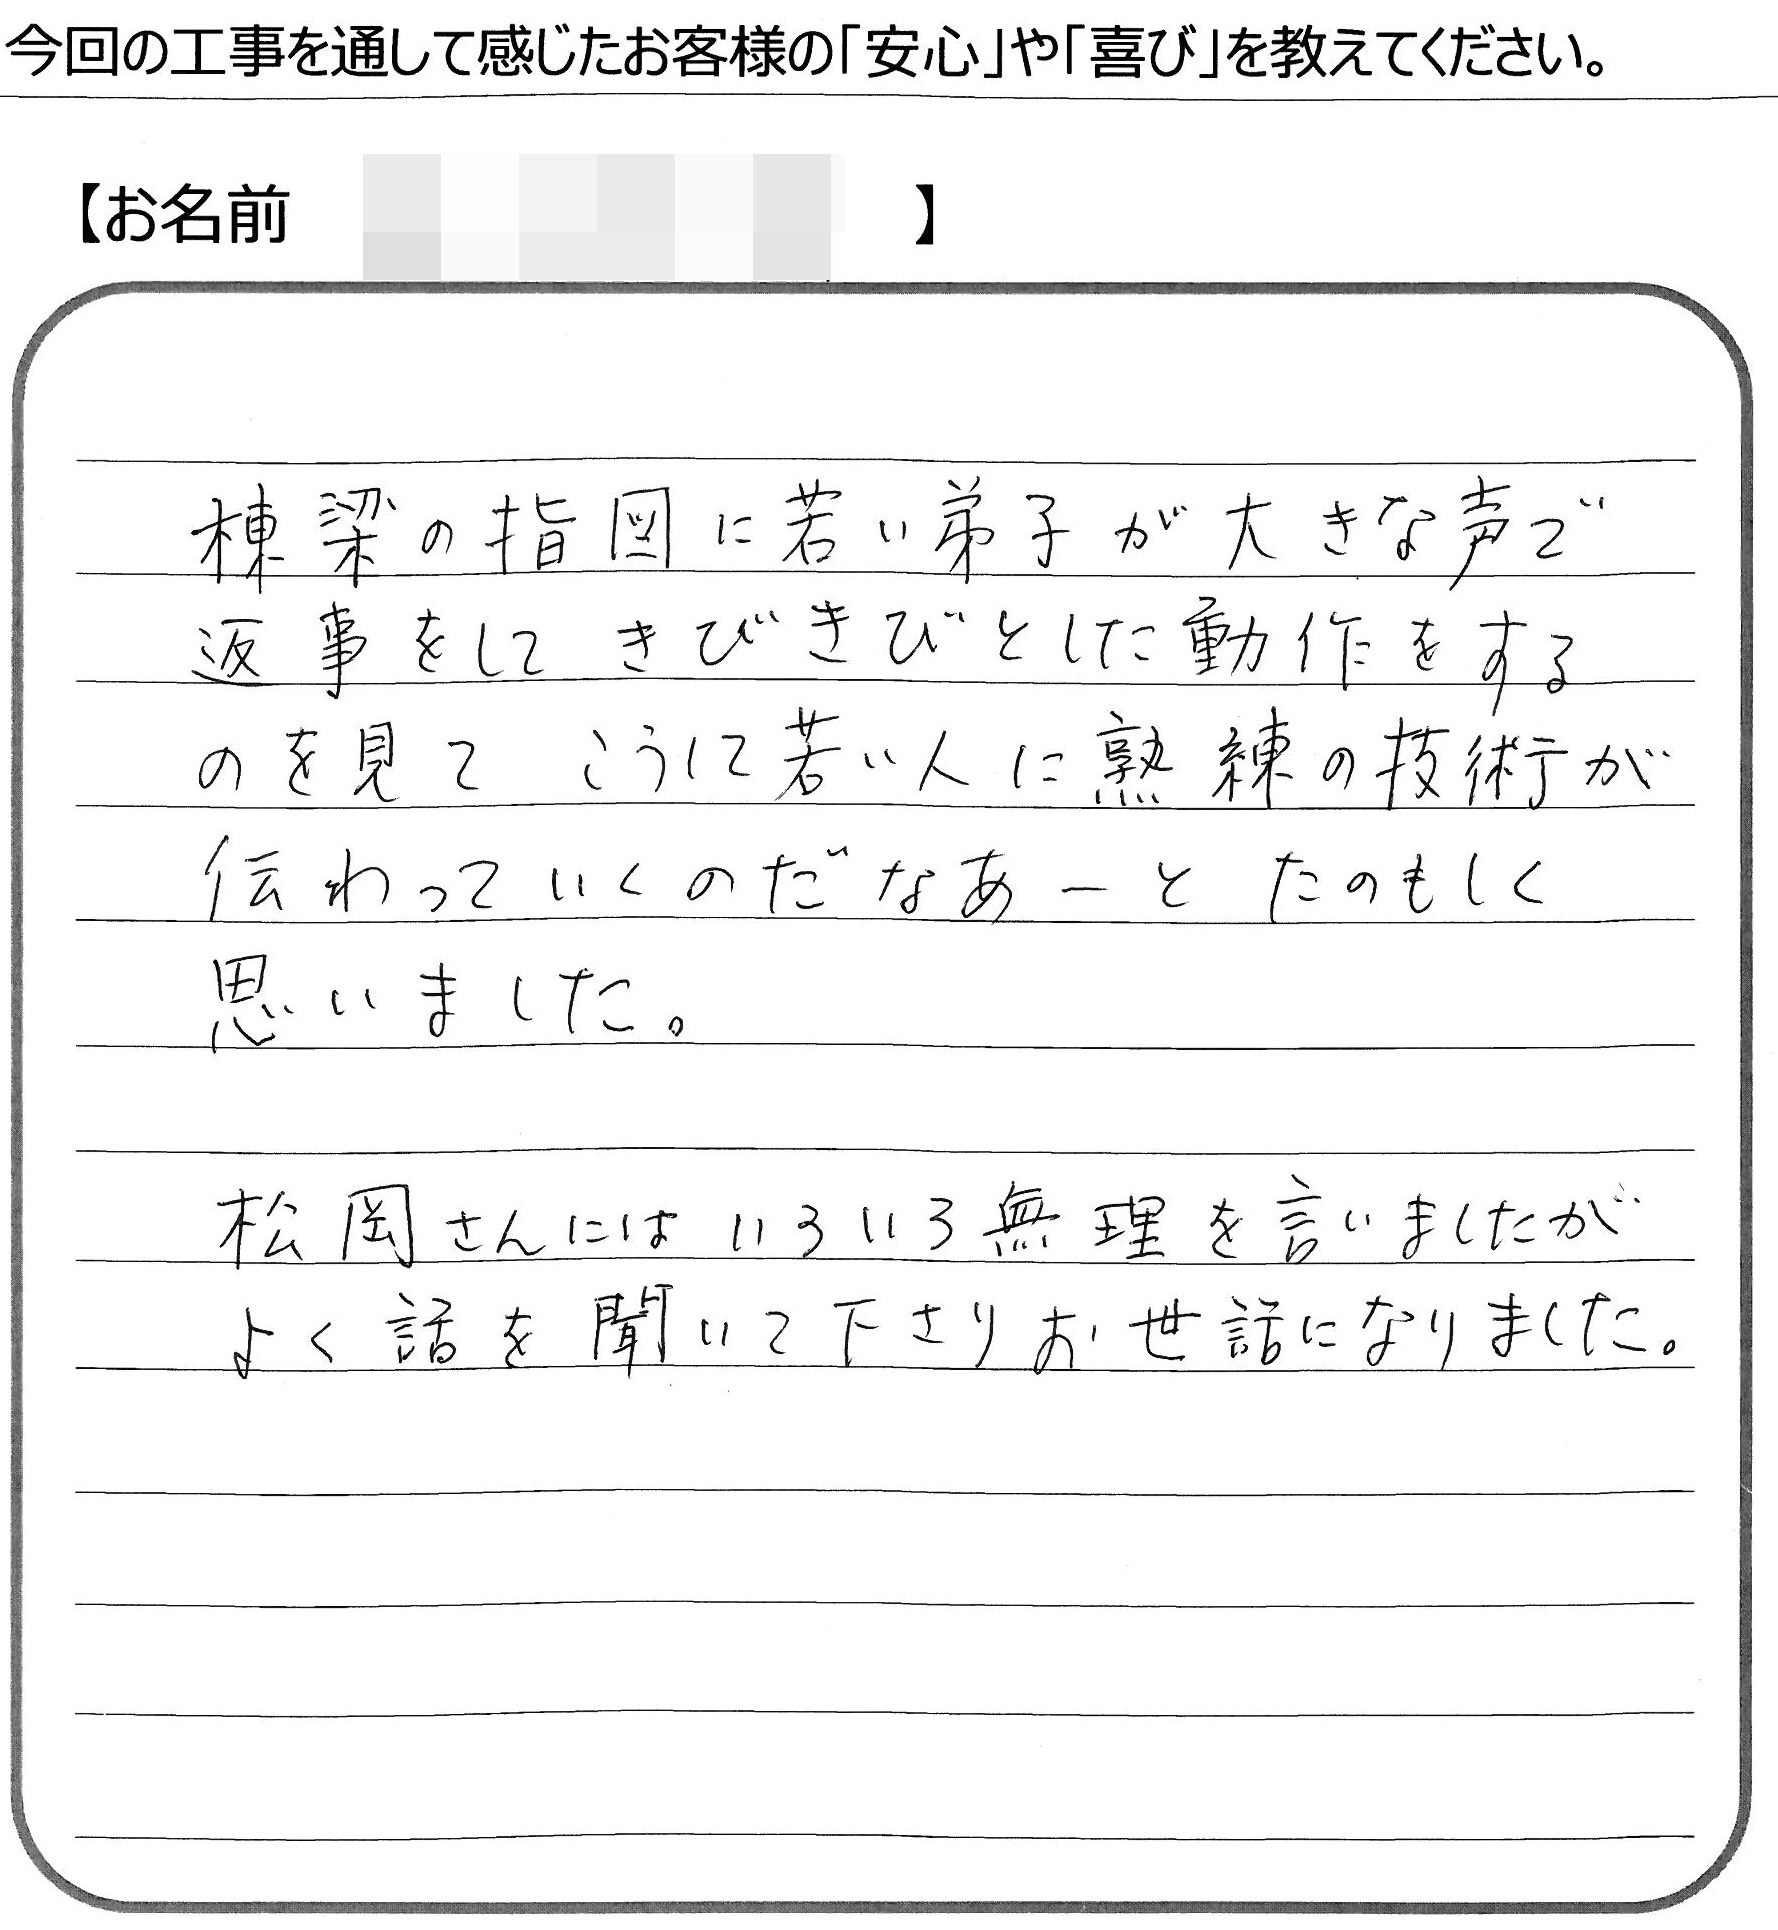 今回の工事を通して感じたお客様の「安心」や「喜び」を教えてください。
【お名前 】
棟梁の指図に若い弟子が大きな声で
返事をして きびきびとした動作をする
のを見て こうして若い人に熟練の技術が
伝わっていくのだなあーと たのもしく
思いました。
松岡さんには いろいろ無理を言いましたが
よく話を聞いて下さりお世話になりました。